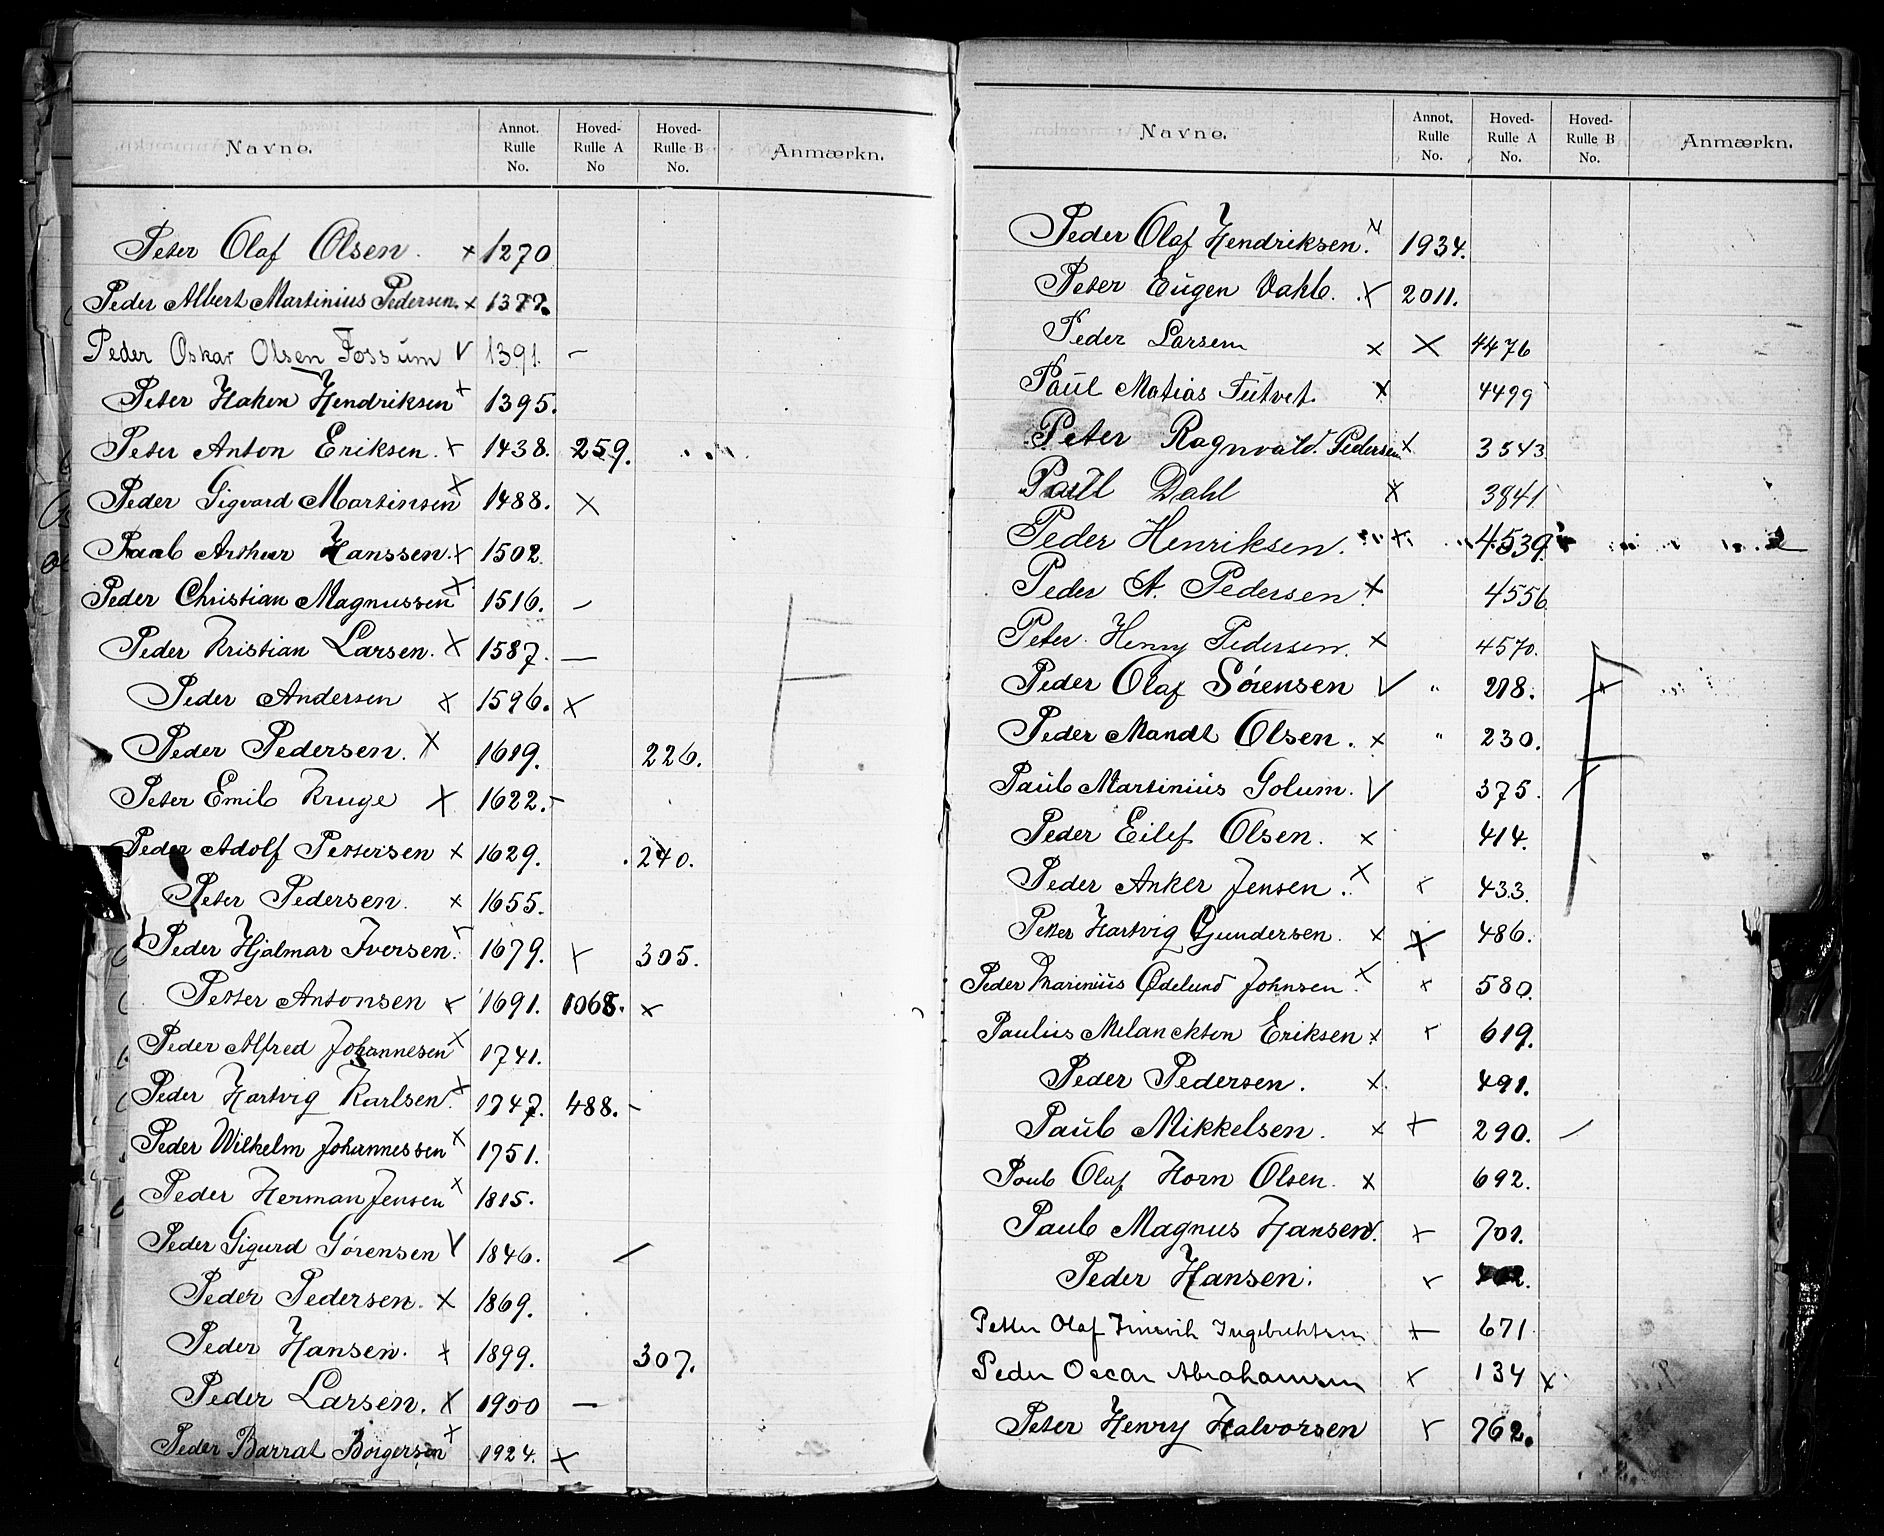 Navne. Annot. Rulle No. Hoved-Rulle A No Hoved-Rulle B No. Anmærkn.
Peter Olaf Olsen. × 1270
Peder Albert Martinius Pedersen. × 1377.
Peder Oskar Olsen Fossum V 1391. –
Peter Haken Hendriksen × 1395.
Peter Anton Eriksen. × 1438. 259.
Peder Sigvard Martinsen × 1488. ×
Paul Arthur Hanssen. × 1502.
Peder Christian Magnussen × 1516. –
Peder Kristian Larsen. × 1587. –
Peder Andersen × 1596. ×
Peder Pedersen. × 1619. 226.
Peter Emil Kruge × 1622. –
Peder Adolf Pettersen × 1629. 240.
Peter Pedersen. × 1655.
Peder Hjalmar Iversen. × 1679. × 305.
Petter Antonsen × 1691. 1068. ×
Peder Alfred Johannesen × 1741.
Peder Hartvig Karlsen. × 1747. 488. –
Peder Wilhelm Johannessen × 1751.
Peder Herman Jensen × 1815.
Peder Sigurd Sørensen V 1846. /
Peder Pedersen. × 1869.
Peder Hansen. × 1899. 307.
Peder Larsen. × 1900 –
Peder Barrat Borgersen × 1924. ×
Navne. Annot. Rulle No. Hoved-Rulle A No. Hoved-Rulle B No. Anmærkn.
Peder Olaf Hendriksen. × 1934.
Peter Eugen Dahl. × 2011.
Peder Larsen × × 4476
Paul Matias Tutvet. × 4499
Peter Ragnvald Pedersen × 3543
Paul Dahl × 3841
Peder Henriksen. × 4539.
Peder A. Pedersen. × 4556
Peter Henry Pedersen. × 4570.
Peder Olaf Sørensen V " 218. ×
Peder Mandt Olsen. × " 230.
Paul Martinius Solum. V 375. ×
Peder Eilef Olsen. × 414.
Peder Anker Jensen. × × 433.
Petter Hartvig Gundersen. × × 486.
Peder Marinius Ødelund Johnsen. × × 580.
Paulius Melanckton Eriksen × × 619.
Peder Pedersen. × 491.
Paul Mikkelsen. × × 290. /
Paul Olaf Horn Olsen. × 692.
Paul Magnus Hansen V. × 701.
Peder Hansen. ×
Petter Olaf Ingebrihtsen × 671
Peder Oscar Abrahamsen × 134 ×
Peter Henry Halvorsen × 762.